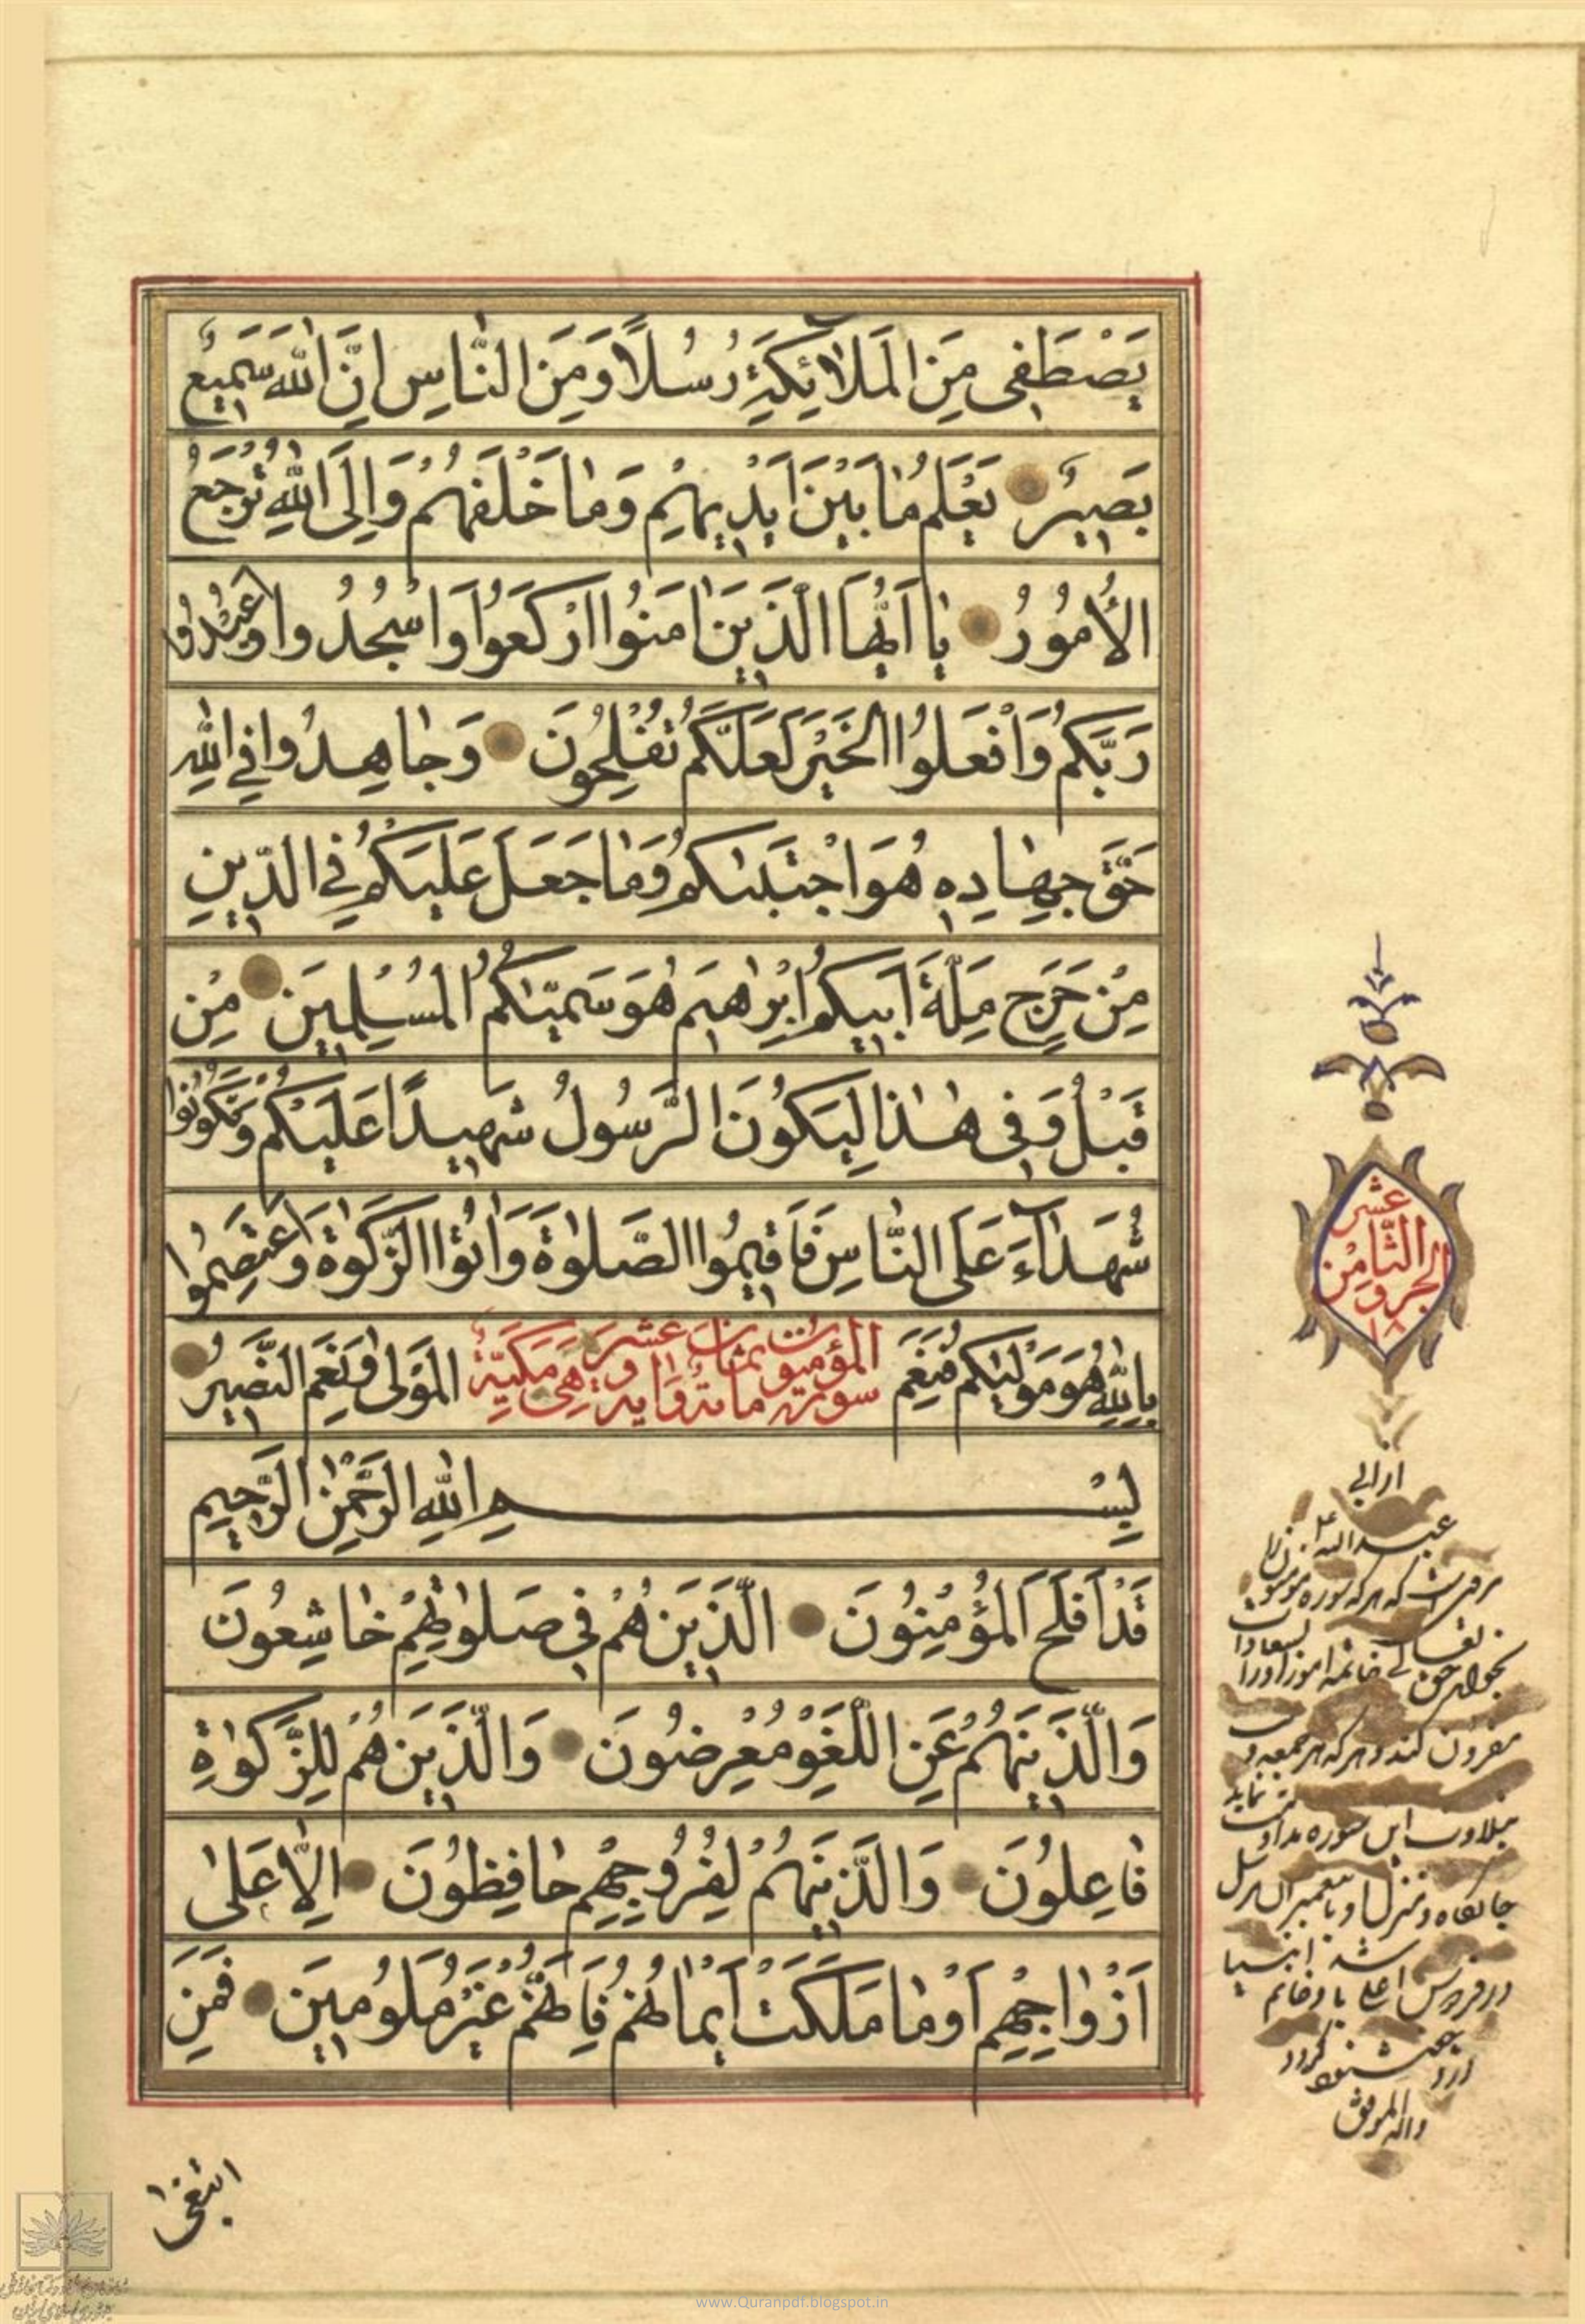 يَصْطَفِي مِنَ الْمَلَائِكَةِ رُسُلًا وَمِنَ النَّاسِ اِنَّ اللهَ سَمِيعٌ
بَصِيرٌ يَعْلَمُ مَا بَيْنَ اَيْدِيهِمْ وَمَا خَلْفَهُمْ وَاِلَى اللهِ تُرْجَعُ
الْأُمُورُ يَا اَيُّهَا الَّذِينَ اٰمَنُوا ارْكَعُوا وَاسْجُدُوا وَاعْبُدُوا
رَبَّكُمْ وَافْعَلُوا الْخَيْرَ لَعَلَّكُمْ تُفْلِحُونَ وَجَاهِدُوا فِي اللهِ
حَقَّ جِهَادِهِ هُوَ اجْتَبٰىكُمْ وَمَا جَعَلَ عَلَيْكُمْ فِي الدِّينِ
مِنْ حَرَجٍ مِلَّةَ اَبِيكُمْ اِبْرٰهِيمَ هُوَ سَمّٰىكُمُ الْمُسْلِمِينَ مِنْ
قَبْلُ وَفِي هٰذَا لِيَكُونَ الرَّسُولُ شَهِيدًا عَلَيْكُمْ وَتَكُونُوا
شُهَدَآءَ عَلَى النَّاسِ فَاَقِيمُوا الصَّلٰوةَ وَاٰتُوا الزَّكٰوةَ وَاعْتَصِمُوا
بِاللهِ هُوَ مَوْلٰيكُمْ فَنِعْمَ الْمَوْلٰى وَنِعْمَ النَّصِيرُ
سورة المؤمنون مائة وثمان عشر اية وهي مكيّة
بِسْمِ اللهِ الرَّحْمٰنِ الرَّحِيمِ
قَدْ اَفْلَحَ الْمُؤْمِنُونَ الَّذِينَ هُمْ فِي صَلٰوتِهِمْ خَاشِعُونَ
وَالَّذِينَ هُمْ عَنِ اللَّغْوِ مُعْرِضُونَ وَالَّذِينَ هُمْ لِلزَّكٰوةِ
فَاعِلُونَ وَالَّذِينَ هُمْ لِفُرُوجِهِمْ حَافِظُونَ اِلَّا عَلٰى
اَزْوَاجِهِمْ اَوْ مَا مَلَكَتْ اَيْمَانُهُمْ فَاِنَّهُمْ غَيْرُ مَلُومِينَ فَمَنِ
ابْتَغٰى
الجزو الثامن عشر
١٨
از ابي
عبدالله
كه هر كه سوره مؤمنون
بخواند حق تعالى خاتمه امور او را
مقرون كند و هر كه هر جمعه
بتلاوت اين سوره نمايد
در فردوس اعلى با
والله الموفق
www.Quranpdf.blogspot.in